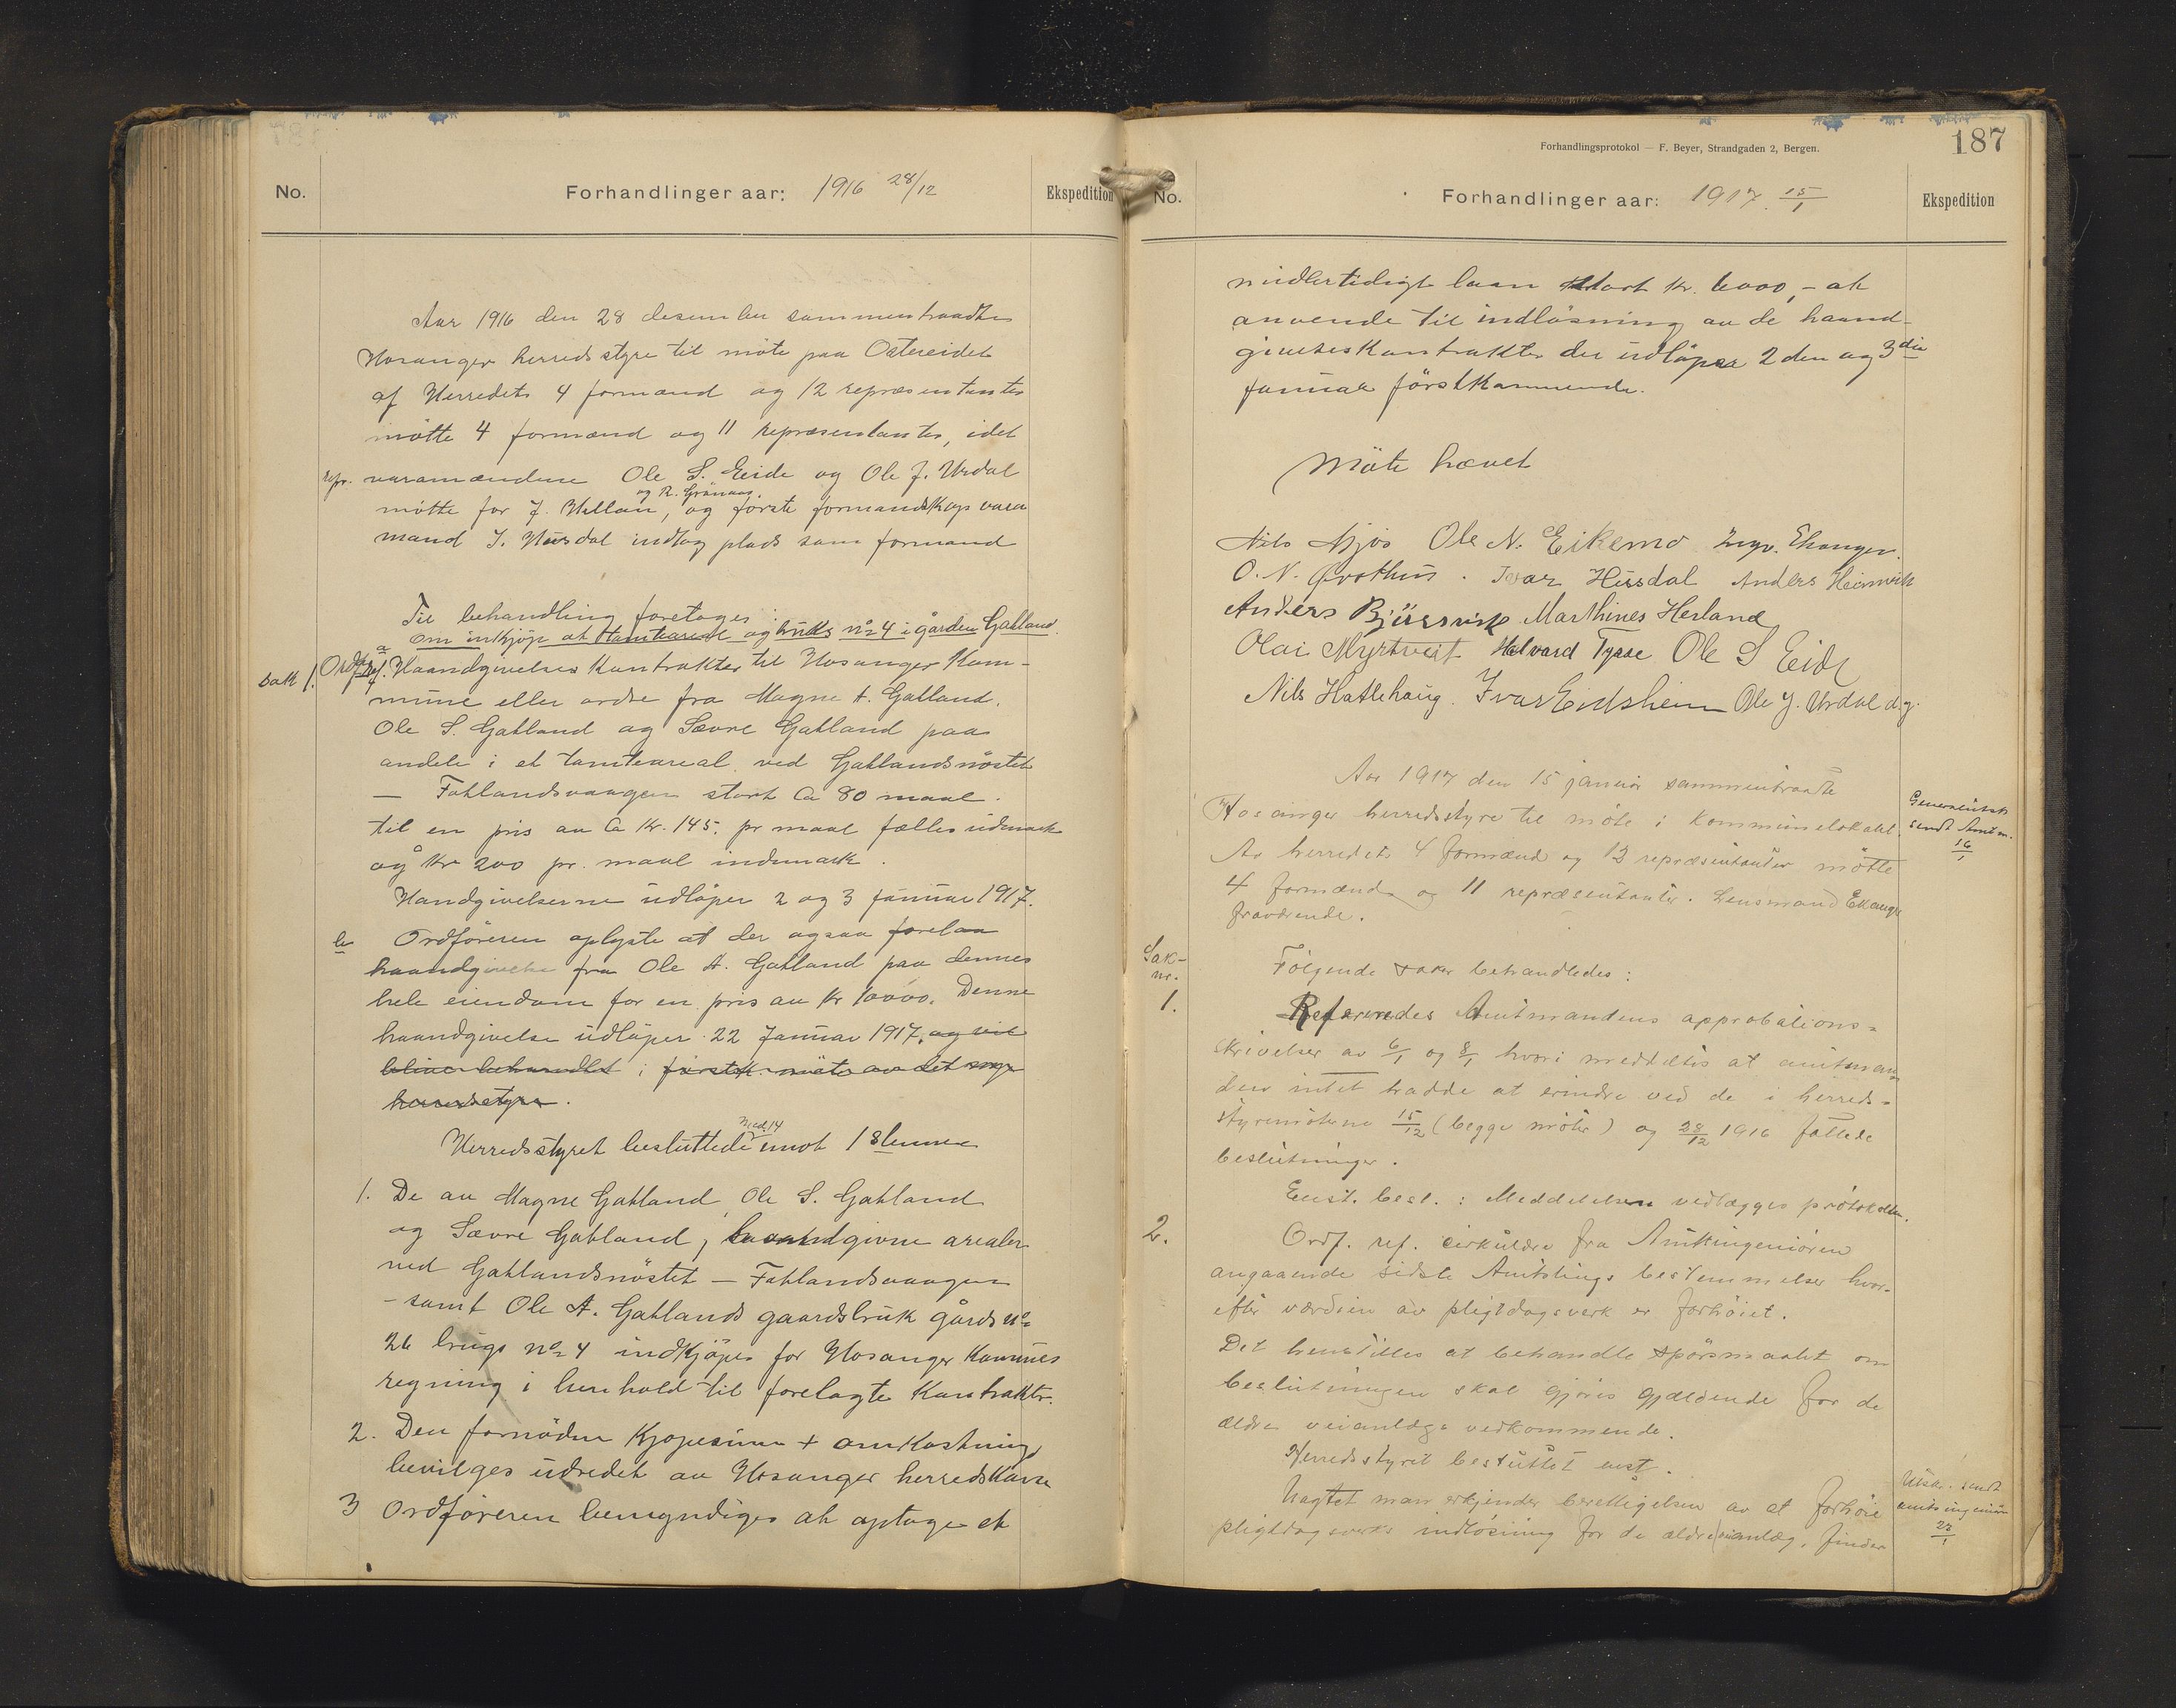 No.
Forhandlinger aar: 1916 28/12
Ekspedition
Aar 1916 den 28 desember sammentraadte
Hosanger herredsstyre til møte paa Ostereidet
af Herredets 4 formænd og 12 repræsentanter
møtte 4 formænd og 11 repræsentanter, idet
repr. varamændene Ole S. Eide og Ole J. Urdal
og R. Grønaas
møtte for J. Hellan, og første formandskap vara
mand I. Husdal indtog plads som formand
Til behandling foretoges:
om inkjøp at tomteareal og bruks no 4 i gården Gahland.
Sak 1. Ordf. ref. a Haandgivelses kontrakter til Hosanger Kom-
mune eller ordre fra Magne A. Gahland,
Ole S. Gahland og Sævre Gahland paa
andele i et tomteareal ved Gahlandsnøstet
— Fotlandsvaagen stort Ca 80 maal.
til en pris av Ca Kr. 145. pr maal fælles udmark
og Kr 200 pr. maal indmark.
Handgivelserne udløper 2 og 3 januar 1917.
b Ordføreren oplyste at der ogsaa forelaa
haandgivelse fra Ole A. Gahland paa dennes
hele eiendom for en pris av Kr 10000. Denne
haandgivelse udløper 22 Januar 1917, og vil
blive behandlet i førstk. møte av det nye
herredsstyre.
Herredsstyret besluttede med 14 imot 1 stemme
1. De av Magne Gahland, Ole S. Gahland
og Sævre Gahland, haandgivne arealer
ved Gahlandsnøstet — Fotlandsvaagen
- samt Ole A. Gahlands gaardsbruk gårds no
26 brugs no 4 indkjøpes for Hosanger Kommunes
regning i henhold til forelagte Kontrakter.
2. Den fornødne Kjøpesum + omkostning
bevilges udredet av Hosanger herredskasse
3 Ordføreren bemyndiges at optage et
Forhandlingsprotokol — F. Beyer, Strandgaden 2, Bergen.
187
No.
Forhandlinger aar: 1917. 15/1
Ekspedition
midlertidigt laan stort kr. 6000,- at
anvende til indløsning av de haand-
givelseskontrakter der udløper 2den og 3die
januar førstkommende.
Møte hævet
Nils Mjøs Ole N. Eikemo Ingv. Ekanger.
O. N. Øvsthus. Ivar Husdal Anders Heimvik
Anders Bjørsvik Marthines Herland
Olai Myrtveit Halvard Tysse Ole S Eide
Nils Hatlehaug. Ivar Eidsheim Ole J. Urdal d.y.
Aar 1917 den 15 januar sammentraadte
Hosanger herredsstyre til møte i kommunelokalet.
Av herredets 4 formænd og 12 repræsentanter møtte
4 formænd og 11 repræsentanter. Lensmand Ekanger
fraværende.
sendt Amtm.
16/1
Sak-
nr.
Følgende saker behandledes:
1.
Refereredes Amtmandens approbations-
skrivelser av 6/1 og 8/1 hvori meddeltes at amtman
den intet hadde at erindre ved de i herreds-
styremøterne 15/12 (begge møter) og 28/12 1916 fattede
beslutninger.
Enst. besl.: Meddelelsen vedlægges protokollen.
2.
Ordf. ref. cirkulære fra Amtsingeniøren
angaaende sidste Amtstings bestemmelser hvor-
efter værdien av pligtdagsverk er forhøiet.
Det henstilles at behandle spørsmaalet om
beslutningen skal gjøres gjældende for de
ældre veianlægs vedkommende.
Herredsstyret besluttet enst.
Uagtet man erkjender berettigelsen av at forhøie
pligtdagsverks indløsning for de ældre veianlæg, finder
Utskr. sendt
amtsingeniør
23/1